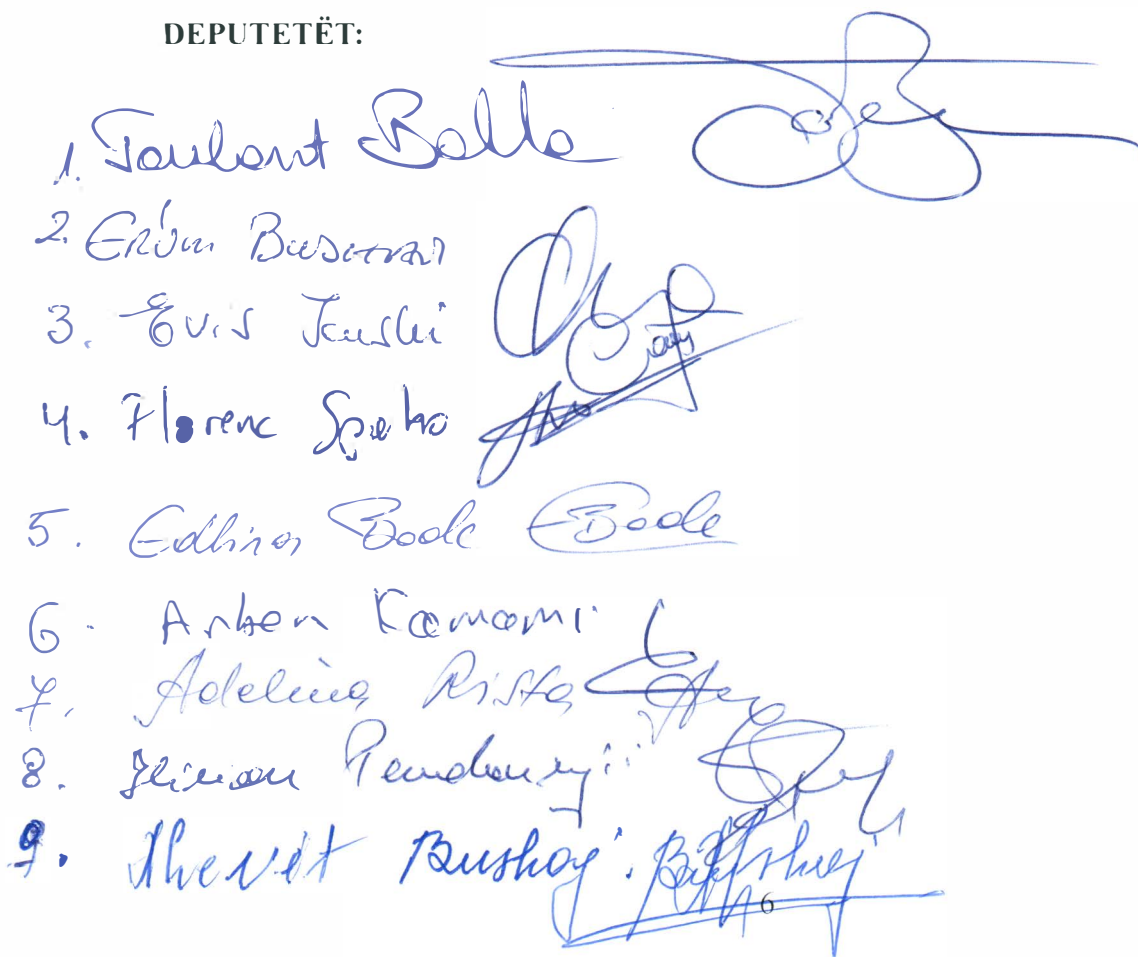 DEPUTETËT:
1. Taulant Balla
2. Erion Bushaj
3. Evis Kushi
4. Florenc Spaho
5. Edlira Bode EBode
6. Arben Kamami
7. Adelina Rista
8. Ilirian Pendavinji
9. Xhevit Bushaj. Bushaj
6